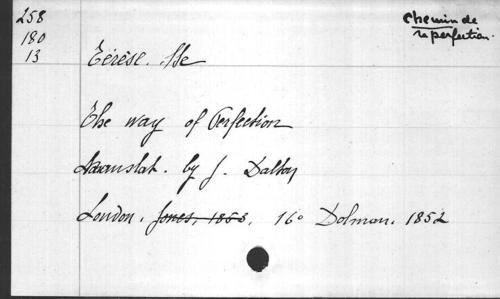 258
180
13
Chemin de
la perfection.
Térèse. Ste
The way of Perfection
translat. by J. Dalton
London. Jones, 1853. 16° Dolman. 1852